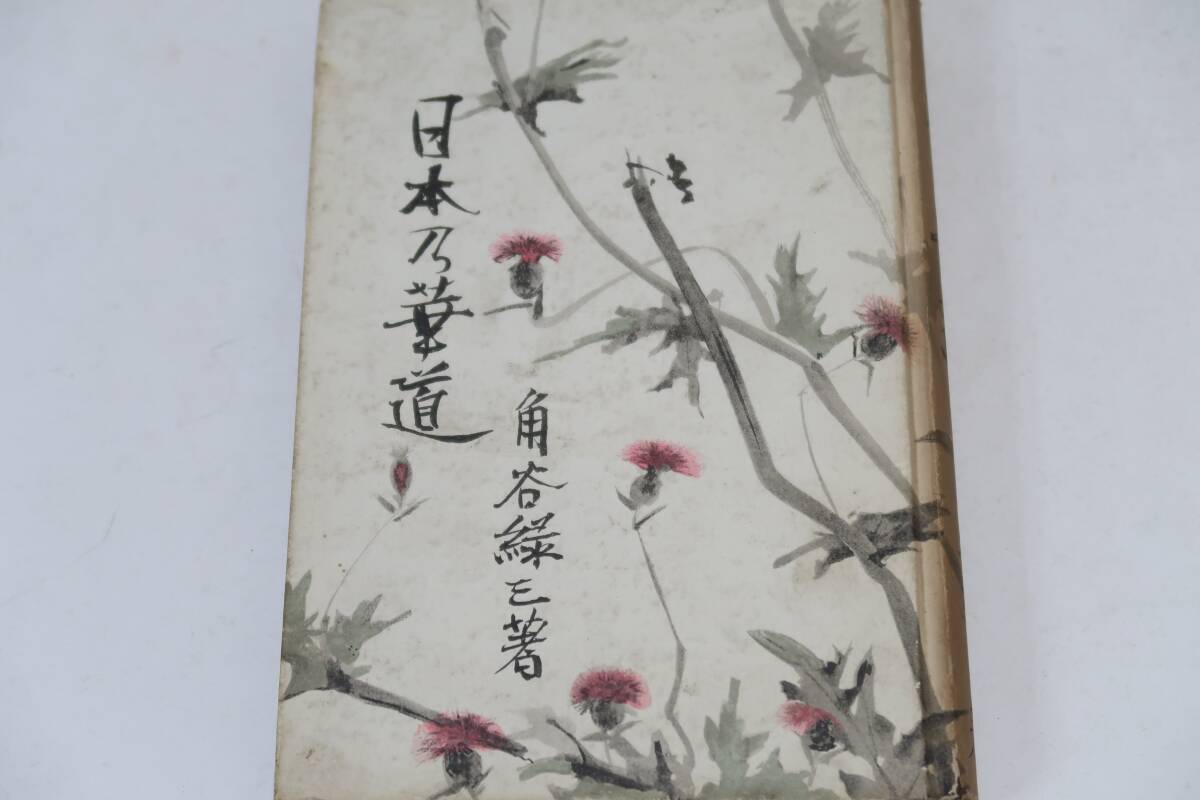 日本乃華道
角谷緑三著